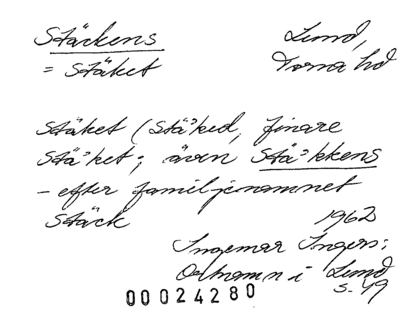 Stäckens Lund,
= Stäket Torna hd
Stäket (Stä²ked, finare
Stä²ket; även Stä²kkens
– efter familjenamnet
Stäck 1962
Ingemar Ingers:
Ortnamn i Lund
s. 49
00024280